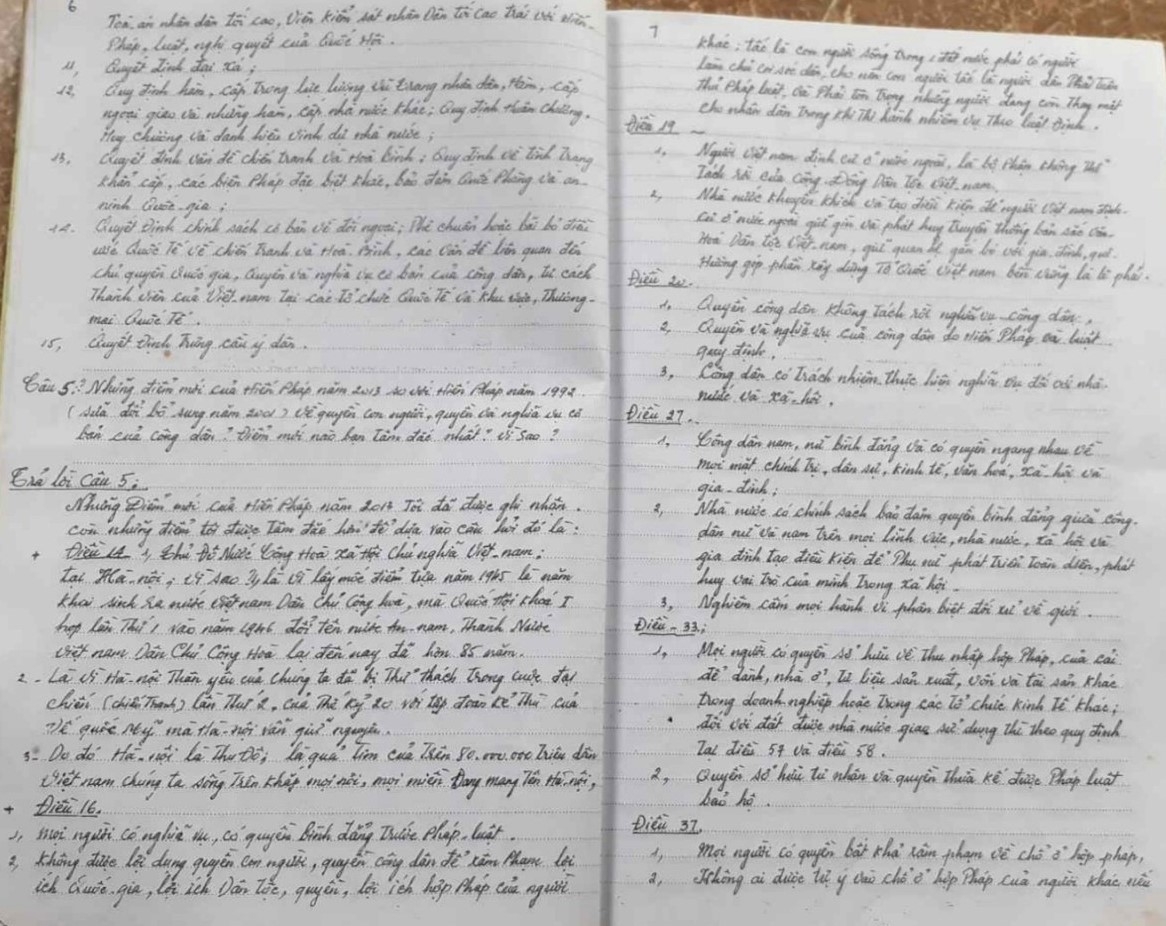 6
Toà án nhân dân tối cao, Viện kiểm sát nhân dân tối cao trái với Hiến-
Pháp, luật, nghị quyết của Quốc Hội.
11, Quyết định đại xá;
12, Quy định hàm, cấp trong lực lượng vũ trang nhân dân, Hàm, cấp
ngoại giao và những hàm, cấp nhà nước khác; Quy định Huân chương,
Huy chương và danh hiệu vinh dự nhà nước;
13, Quyết định vấn đề chiến tranh và Hoà Bình; Quy định về tình trạng
khẩn cấp, các biện Pháp đặc biệt khác, bảo đảm Quốc Phòng và an-
ninh Quốc-gia;
14. Quyết định chính sách cơ bản về đối ngoại; Phê chuẩn hoặc bãi bỏ điều
ước Quốc Tế về chiến tranh và Hoà Bình, các vấn đề liên quan đến
chủ quyền Quốc gia, Quyền và nghĩa vụ cơ bản của công dân, tư cách
Thành viên của Việt-nam tại các tổ chức Quốc Tế và khu vực, Thương-
mại Quốc Tế.
15, Quyết định trưng cầu ý dân.
Câu 5: ? Những điểm mới của Hiến Pháp năm 2013 so với Hiến Pháp năm 1992
(sửa đổi bổ sung năm 2001) về quyền con người, quyền và nghĩa vụ cơ
bản của công dân? Điểm mới nào bạn tâm đắc nhất? Vì sao?
Trả lời câu 5:
Những Điểm mới của Hiến Pháp năm 2013 Tôi đã được ghi nhận.
còn những điểm tôi được tâm đắc hơn để dựa vào câu hỏi đó là:
+ Điều 14 1, Thủ Đô Nước Cộng Hoà Xã Hội Chủ nghĩa Việt-nam;
tại Hà-nội; vì sao ?, là vì lấy mốc điểm tựa năm 1945 là năm
khai sinh ra nước Việt nam Dân Chủ Cộng hoà, mà Quốc Hội khoá I
họp lần Thứ 1 vào năm 1946 đổi tên nước An-nam, Thành Nước
Việt nam Dân Chủ Cộng Hoà lại đến nay đã hơn 85 năm.
2 - Là vì Hà-nội Thân yêu của chúng ta đã bị Thử thách trong cuộc đại
chiến (chiến Tranh) lần Thứ 2, của Thế kỷ 20 với tập đoàn kẻ Thù của
Đế quốc Mỹ mà Hà-nội vẫn giữ nguyên.
3 - Do đó Hà-nội là Thủ Đô; là quả tim của Trên 80.000.000 Triệu dân
Việt nam chúng ta sống Trên khắp mọi nơi, mọi miền Đang mang Tên Hà-nội,
+ Điều 16.
1, mọi người có nghĩa vụ, có quyền Bình đẳng Trước Pháp-luật.
2, Không được lợi dụng quyền con người, quyền công dân để xâm Phạm lợi
ích Quốc-gia, lợi ích Dân Tộc, quyền, lợi ích hợp Pháp của người
7
khác; tức là con người sống trong 1 đất nước phải có người
làm chủ coi sóc dân, cho nên con người là người dân Phải Tuân
Thủ Pháp luật, và Phải tôn trọng những người đang còn Thay mặt
cho nhân dân trong khi Thi hành nhiệm vụ Theo luật Định.
Điều 19
1, Người Việt nam định cư ở nước ngoài, là bộ Phận không Thể
Tách rời của cộng-đồng Dân Tộc Việt-nam.
2, Nhà nước khuyến khích và tạo điều kiện để người Việt nam định-
cư ở nước ngoài giữ gìn và phát huy truyền thống bản sắc văn-
Hoá Dân tộc Việt-nam, giữ quan hệ gắn bó với gia đình, quê-
Hương góp phần xây dựng Tổ Quốc Việt nam bền vững
Điều 20.
1, Quyền công dân không tách rời nghĩa vụ công dân.
2, Quyền và nghĩa vụ của công dân do Hiến Pháp và luật
quy định.
3, Công dân có Trách nhiệm thực hiện nghĩa vụ đối với nhà-
nước và xã-hội.
Điều 27.
1, Công dân nam, nữ bình đẳng và có quyền ngang nhau về
mọi mặt chính trị, dân sự, kinh tế, văn hoá, xã-hội và
gia-đình;
2, Nhà nước có chính sách bảo đảm quyền bình đẳng giữa công-
dân nữ và nam trên mọi lĩnh vực, nhà nước, xã hội và
gia đình tạo điều kiện để Phụ nữ phát triển Toàn diện, phát
huy vai Trò của mình Trong xã hội.
3, Nghiêm cấm mọi hành vi phân biệt đối xử về giới.
Điều - 33;
1, Mọi người có quyền sở hữu về Thu nhập hợp Pháp, của cải
để dành, nhà ở, tư liệu sản xuất, vốn và tài sản khác
trong doanh-nghiệp hoặc trong các tổ chức kinh Tế khác;
đối với đất được nhà nước giao sử dụng thì theo quy định
Tại điều 57 và điều 58.
2, Quyền sở hữu tư nhân và quyền Thừa kế được Pháp luật
bảo hộ.
Điều 37.
1, Mọi người có quyền bất khả xâm phạm về chỗ ở hợp pháp,
2, Không ai được tự ý vào chỗ ở hợp Pháp của người khác nếu